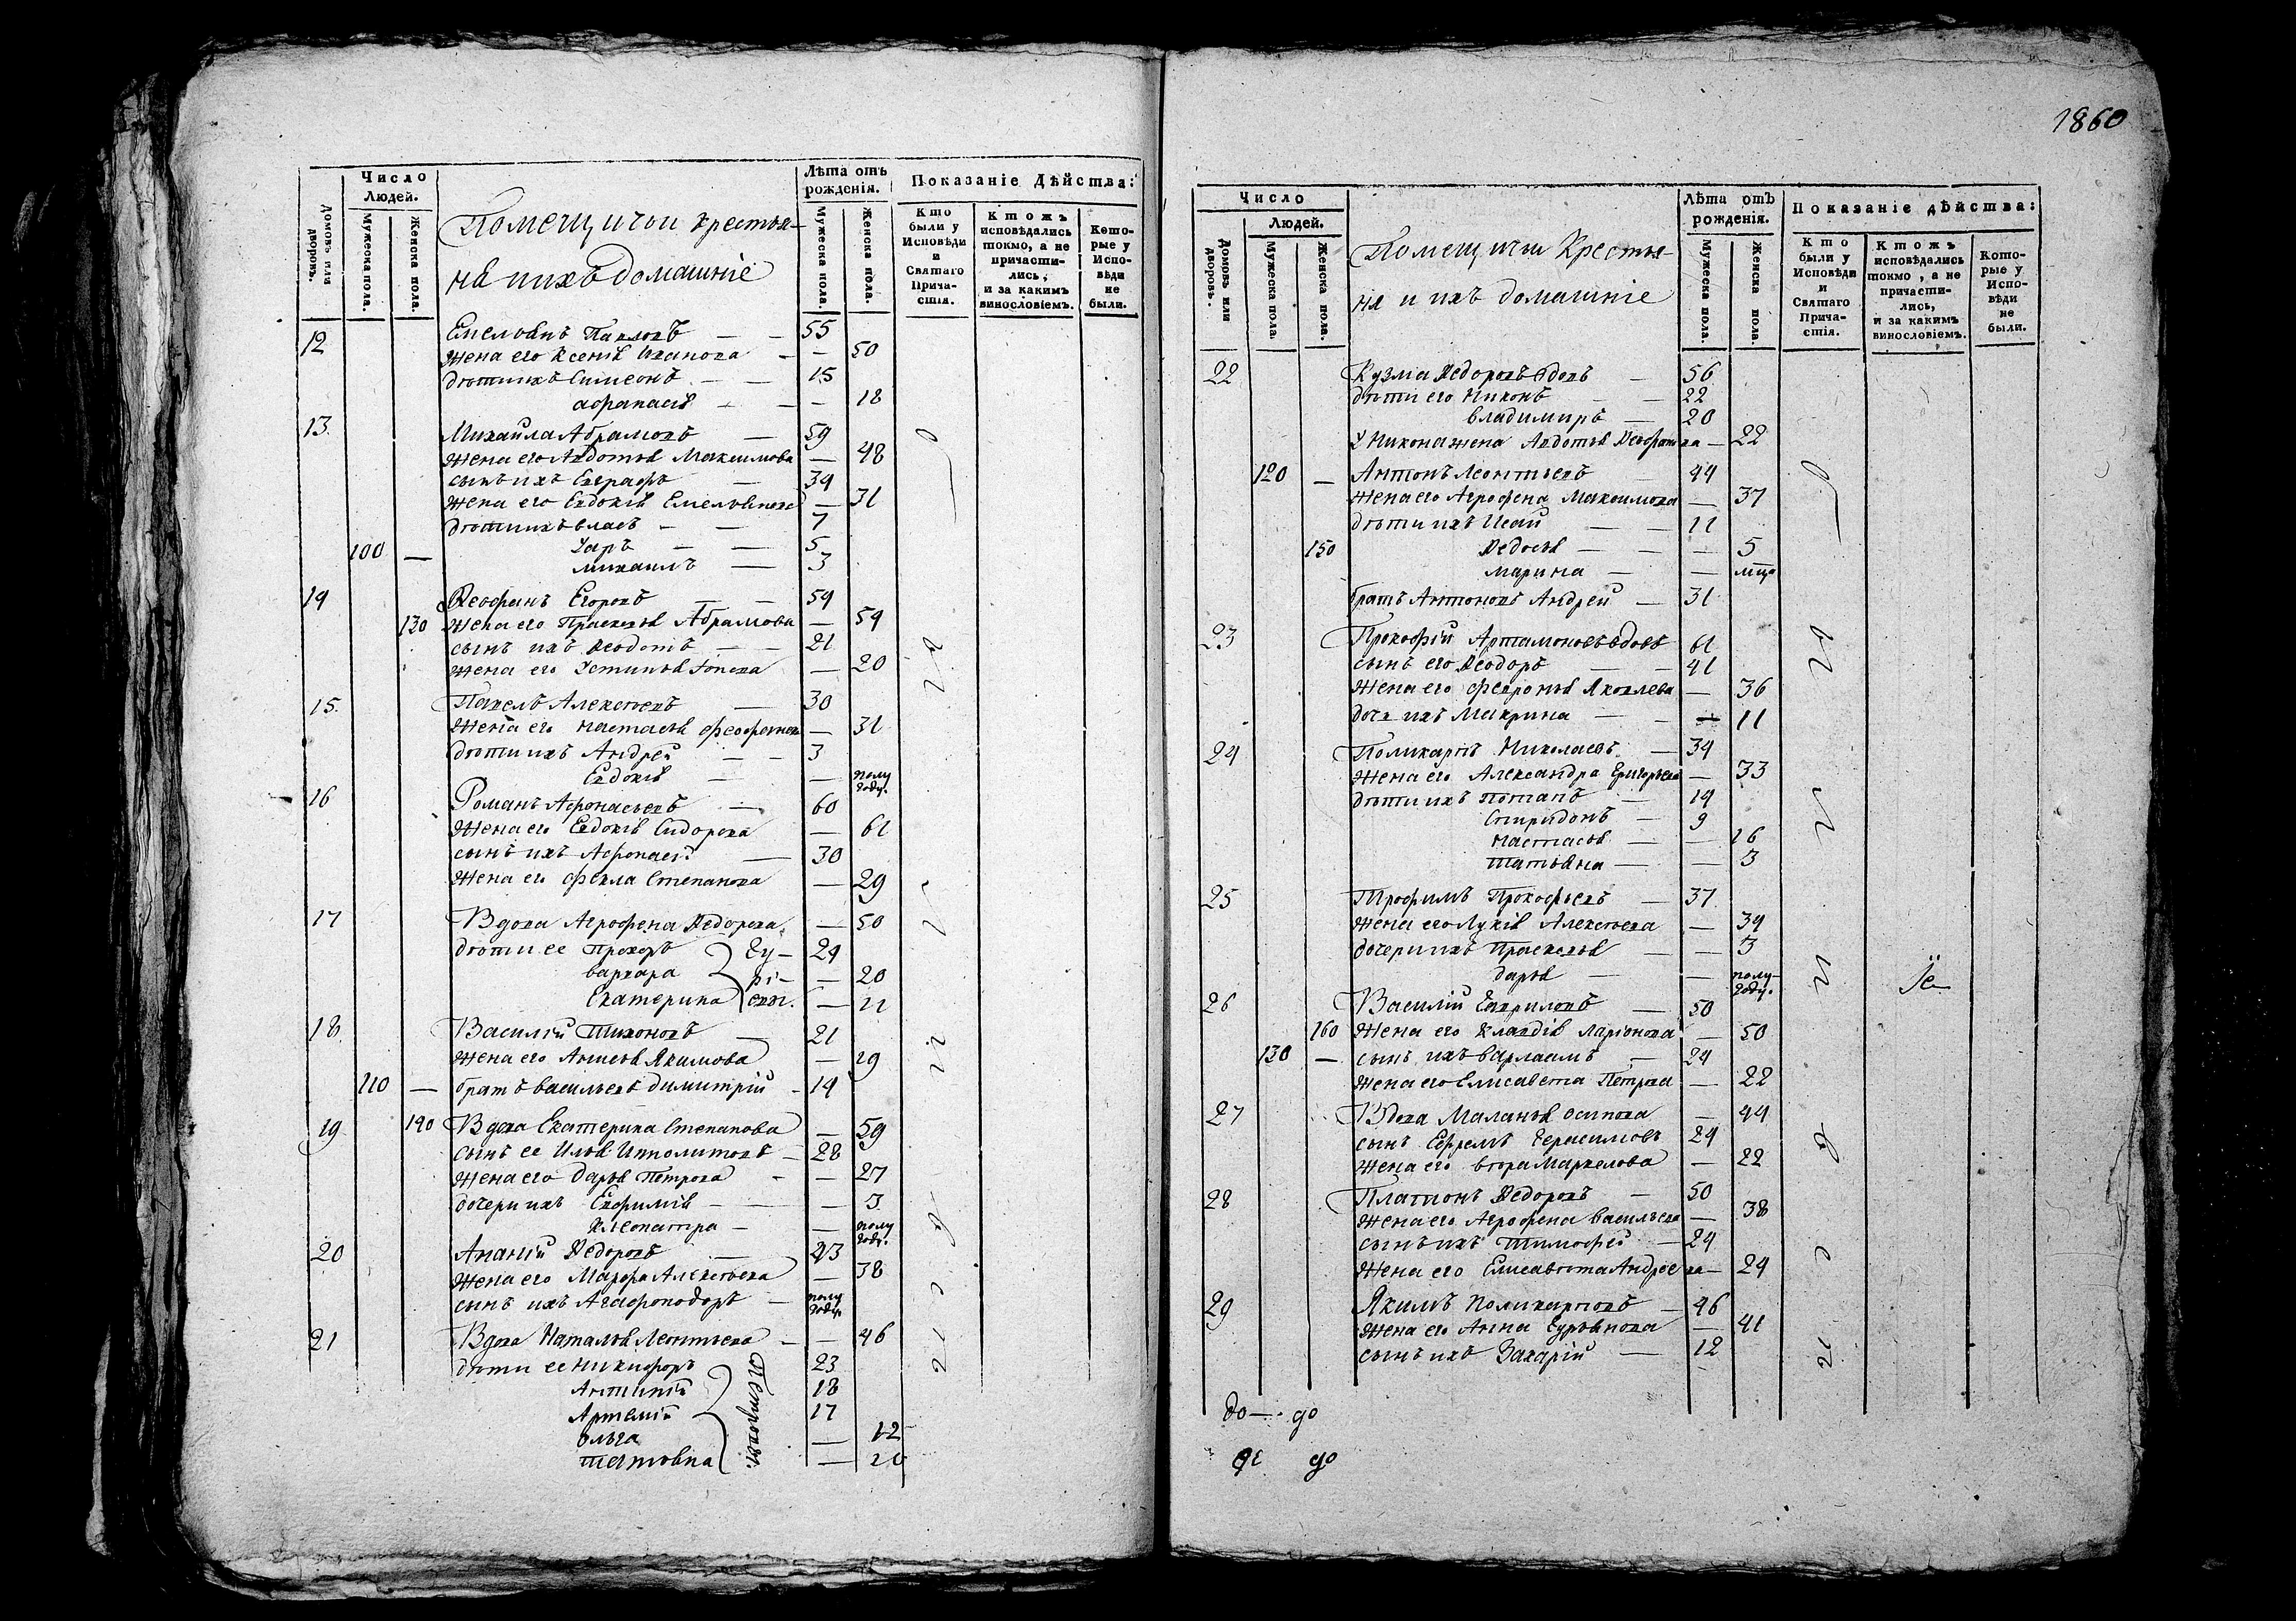 Число
Людей.
Лѣта отъ
рожденія.
Показаніе Дѣйства:
Домовъ или дворовъ.
Мужеска пола.
Женска пола.
Помещичьи крестья-
на и ихъ домашніе
Мужеска пола.
Женска пола.
Кто были у Исповѣди и Святаго Прича-стія.
Ктожъ исповѣдались токмо, а не причасти-лись, и за какимъ винословіемъ.
Кото-рые у Испо-вѣди не были.
12 Емельянъ Павловъ — — 55
жена его Ксенія Иванова — — 50
дѣти ихъ Симеонъ — — 15
Афанасья — — 18
13 Михайла Абрамовъ — 59
жена его Авдотья Максимова — 48
сынъ ихъ Евграфъ — 34
жена его Евдокія Емельянова — 31
дѣти ихъ Власъ — — 7
100 — Уаръ — — 5
михаилъ — 3
14 Ѳеофанъ Егоровъ — — 59
130 жена его Прасковья Абрамова — 59
сынъ ихъ Ѳеодотъ — — 21
жена его Устинья Іонова — 20
15 Павелъ Алексѣевъ — 30
жена его настасья Феофанова — 31
дѣти ихъ Андрей — — 3
Евдокія — — полу году.
16 Романъ Афонасьевъ — 60
жена его Евдокія Сидорова — 61
сынъ ихъ Афонасій — 30
жена его Фекла Степанова — 29
17 Вдова Агрофена Ѳедорова — 50
дѣти ее Прохоръ Гу- 24
варвара рі- — 20
Екатерина евы. — 11
18 Василій Тихоновъ — 21
жена его Анисья Якимова — 19
110 — братъ васильевъ димитрій — 14
19 140 Вдова Екатерина Степанова — 59
сынъ ее Илья Ипполитовъ — 28
жена его Дарья Петрова — — 27
дочери ихъ Евфимія — — 3
Клеопатра — — полу году.
20 Ананій Ѳедоровъ — 43
жена его Марфа Алексѣева — 38
сынъ ихъ Агафоподоръ — полу году
21 Вдова Наталья Леонтьева — — 46
дѣти ее никифоръ 23
Антипій 18
Артемій 17
Ольга — 12
татьяна — 20
Петровы.
1860
Число
Людей.
Лѣта отъ
рожденія.
Показаніе дѣйства:
Домовъ или дворовъ.
Мужеска пола.
Женска пола.
Помещичьи Крестья-
на и ихъ домашніе
Мужеска пола.
Женска пола.
Кто были у Исповѣди и Святаго Прича-стія.
Ктожъ исповѣдались токмо, а не причасти-лись, и за какимъ винословіемъ.
Кото-рые у Испо-вѣди не были.
22 Кузма Ѳедоровъ вдовъ — 56
дѣти его Никонъ — — 22
владимиръ — 20
У Никона жена Авдотья — 22
120 — Антонъ Леонтьевъ — 44
жена его Агрофена Максимова — 37
дѣти ихъ Исай — — 11
150 Ѳедосья — — — 5
Марина — — мцъ
братъ Антоновъ Андрей — 31
23 Прокофій Артамоновъ вдовъ 61
сынъ его Ѳеодоръ — — 41
жена его февронья Яковлева — 36
дочь ихъ Макрина — — — 11
24 Поликарпъ Николаевъ — 34
жена его Александра Григорьева — 33
дѣти ихъ Потапъ — 14
Спиридонъ — 9
настасья — — 16
татьяна — — 3
25 Трофимъ Прокофьевъ — 37
жена его Лукія Алексѣева — 34
дочери ихъ Прасковья — — 3
дарья — — полу-году.
26 Василій Гавриловъ — 50
160 жена его Клавдія Ларіонова — 50
130 — сынъ ихъ варлаамъ — 24
жена его Елисавета Петрова — 22
27 Вдова Маланья Осипова — 44
сынъ Ефремъ Герасимовъ 24
жена его вѣра Маркелова — 22
28 Платонъ Ѳедоровъ — 50
жена его Агрофена васильева — 38
сынъ ихъ Тимофей — 24
жена его Елисавѣта Андреева — 24
29 Якимъ Поликарповъ — 46
жена его Анна Гурьянова — 41
сынъ ихъ Захарій — 12